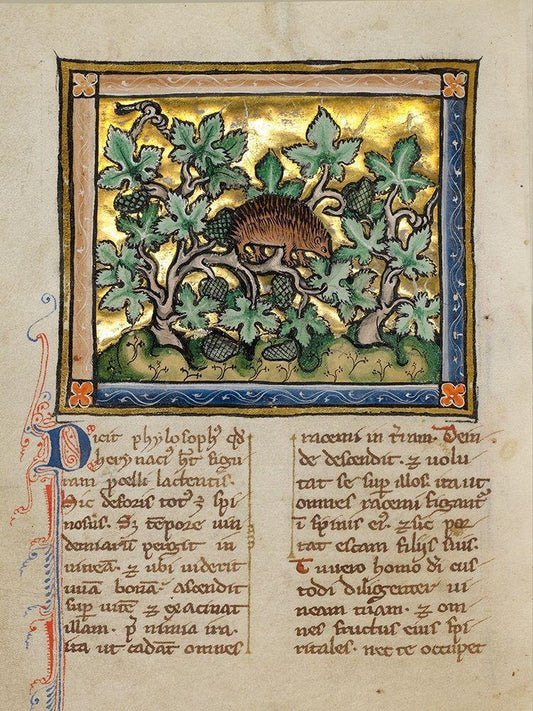 Dicit phylosoph9 qd
herynaci9 ht figu
ram pcelli lactentis.
Hic deforis tot9 ē spi
nosus. Sz tēpore vin
demiarū pergit in
vineā. ⁊ ubi viderit
vuā bonā. ascendit
sup vitē ⁊ exacinat
illam. p̄
ita ut cadāt omnes
racemi in t̄ram. Dein
de descendit. ⁊ volu
tat se sup illos. ita ut
omnes racemi figant᷑
ī spinis ei9. ⁊ sic por
tat escam filijs suis.
Tu vero homo di cus
todi diligenter vi
neam tuam. ⁊ om
nes fructus eius spi
ritales. nec te occupet